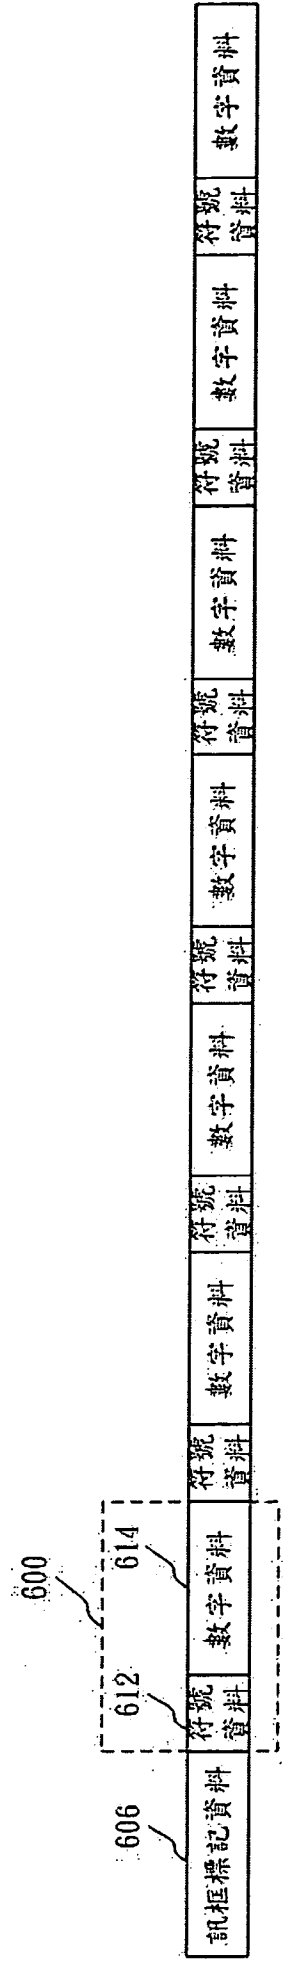 600
606
612
614
訊框標記資料
符號
資料
數字資料
符號
資料
數字資料
符號
資料
數字資料
符號
資料
數字資料
符號
資料
數字資料
符號
資料
數字資料
符號
資料
數字資料